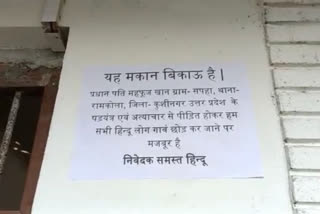 यह मकान बिकाऊ है |
प्रधान पति महफूज खान ग्राम- गपहा, थाना-
रामकोला, जिला- कुशीनगर उत्तर प्रदेश के
षडयंत्र एवं अत्याचार से पीड़ित होकर हम
सभी हिन्दू लोग गावं छोड़ कर जाने पर
मजबूर है
निवेदक समस्त हिन्दू